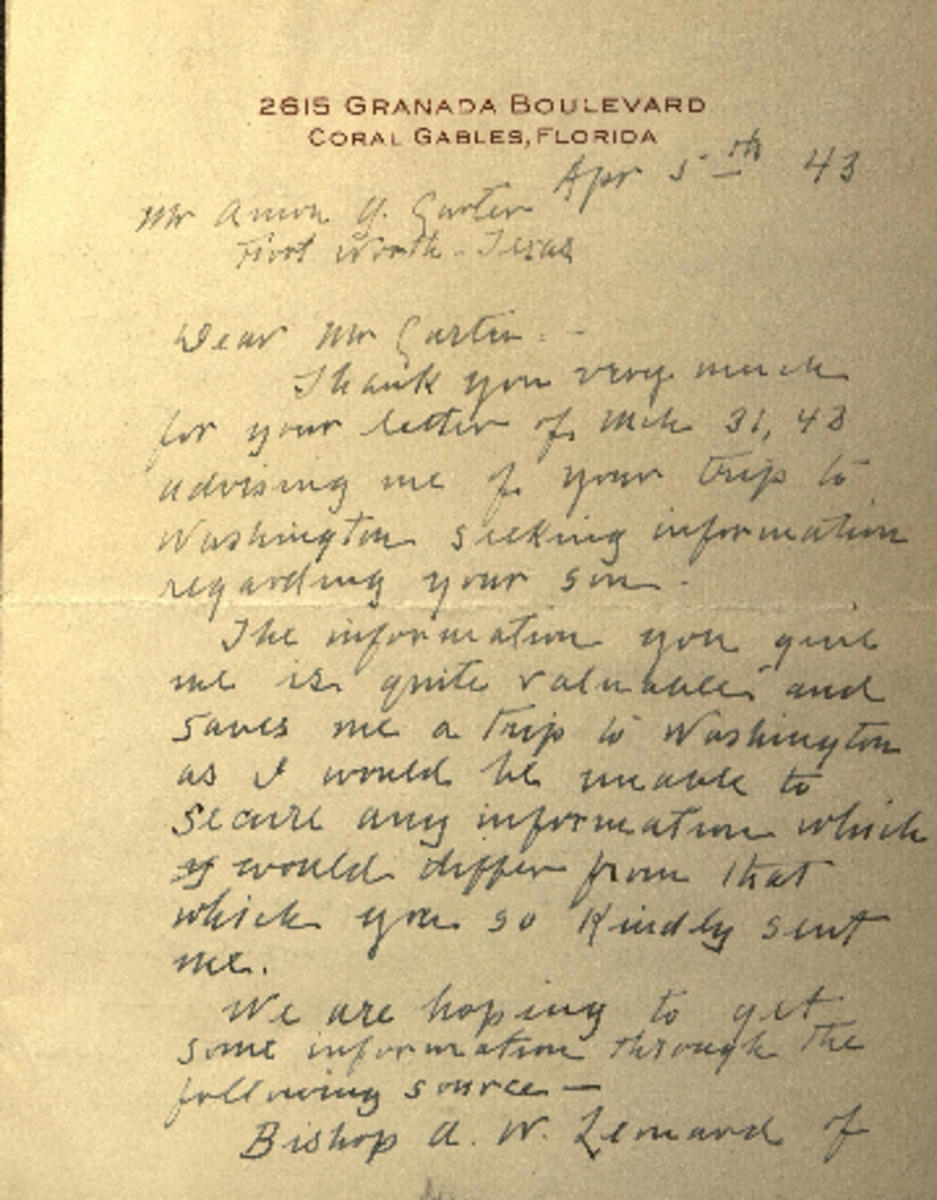 2615 GRANADA BOULEVARD
CORAL GABLES, FLORIDA
Apr 5th 43
Mr Amon G. Carter
Fort Worth - Texas
Dear Mr Carter: -
Thank you very much
for your letter of Mch 31, 43
advising me of your trip to
Washington seeking information
regarding your son.
The information you give
me is quite valuable and
saves me a trip to Washington
as I would be unable to
secure any information which
would differ from that
which you so kindly sent
me.
We are hoping to get
some information through the
following source —
Bishop A. W. Leonard of